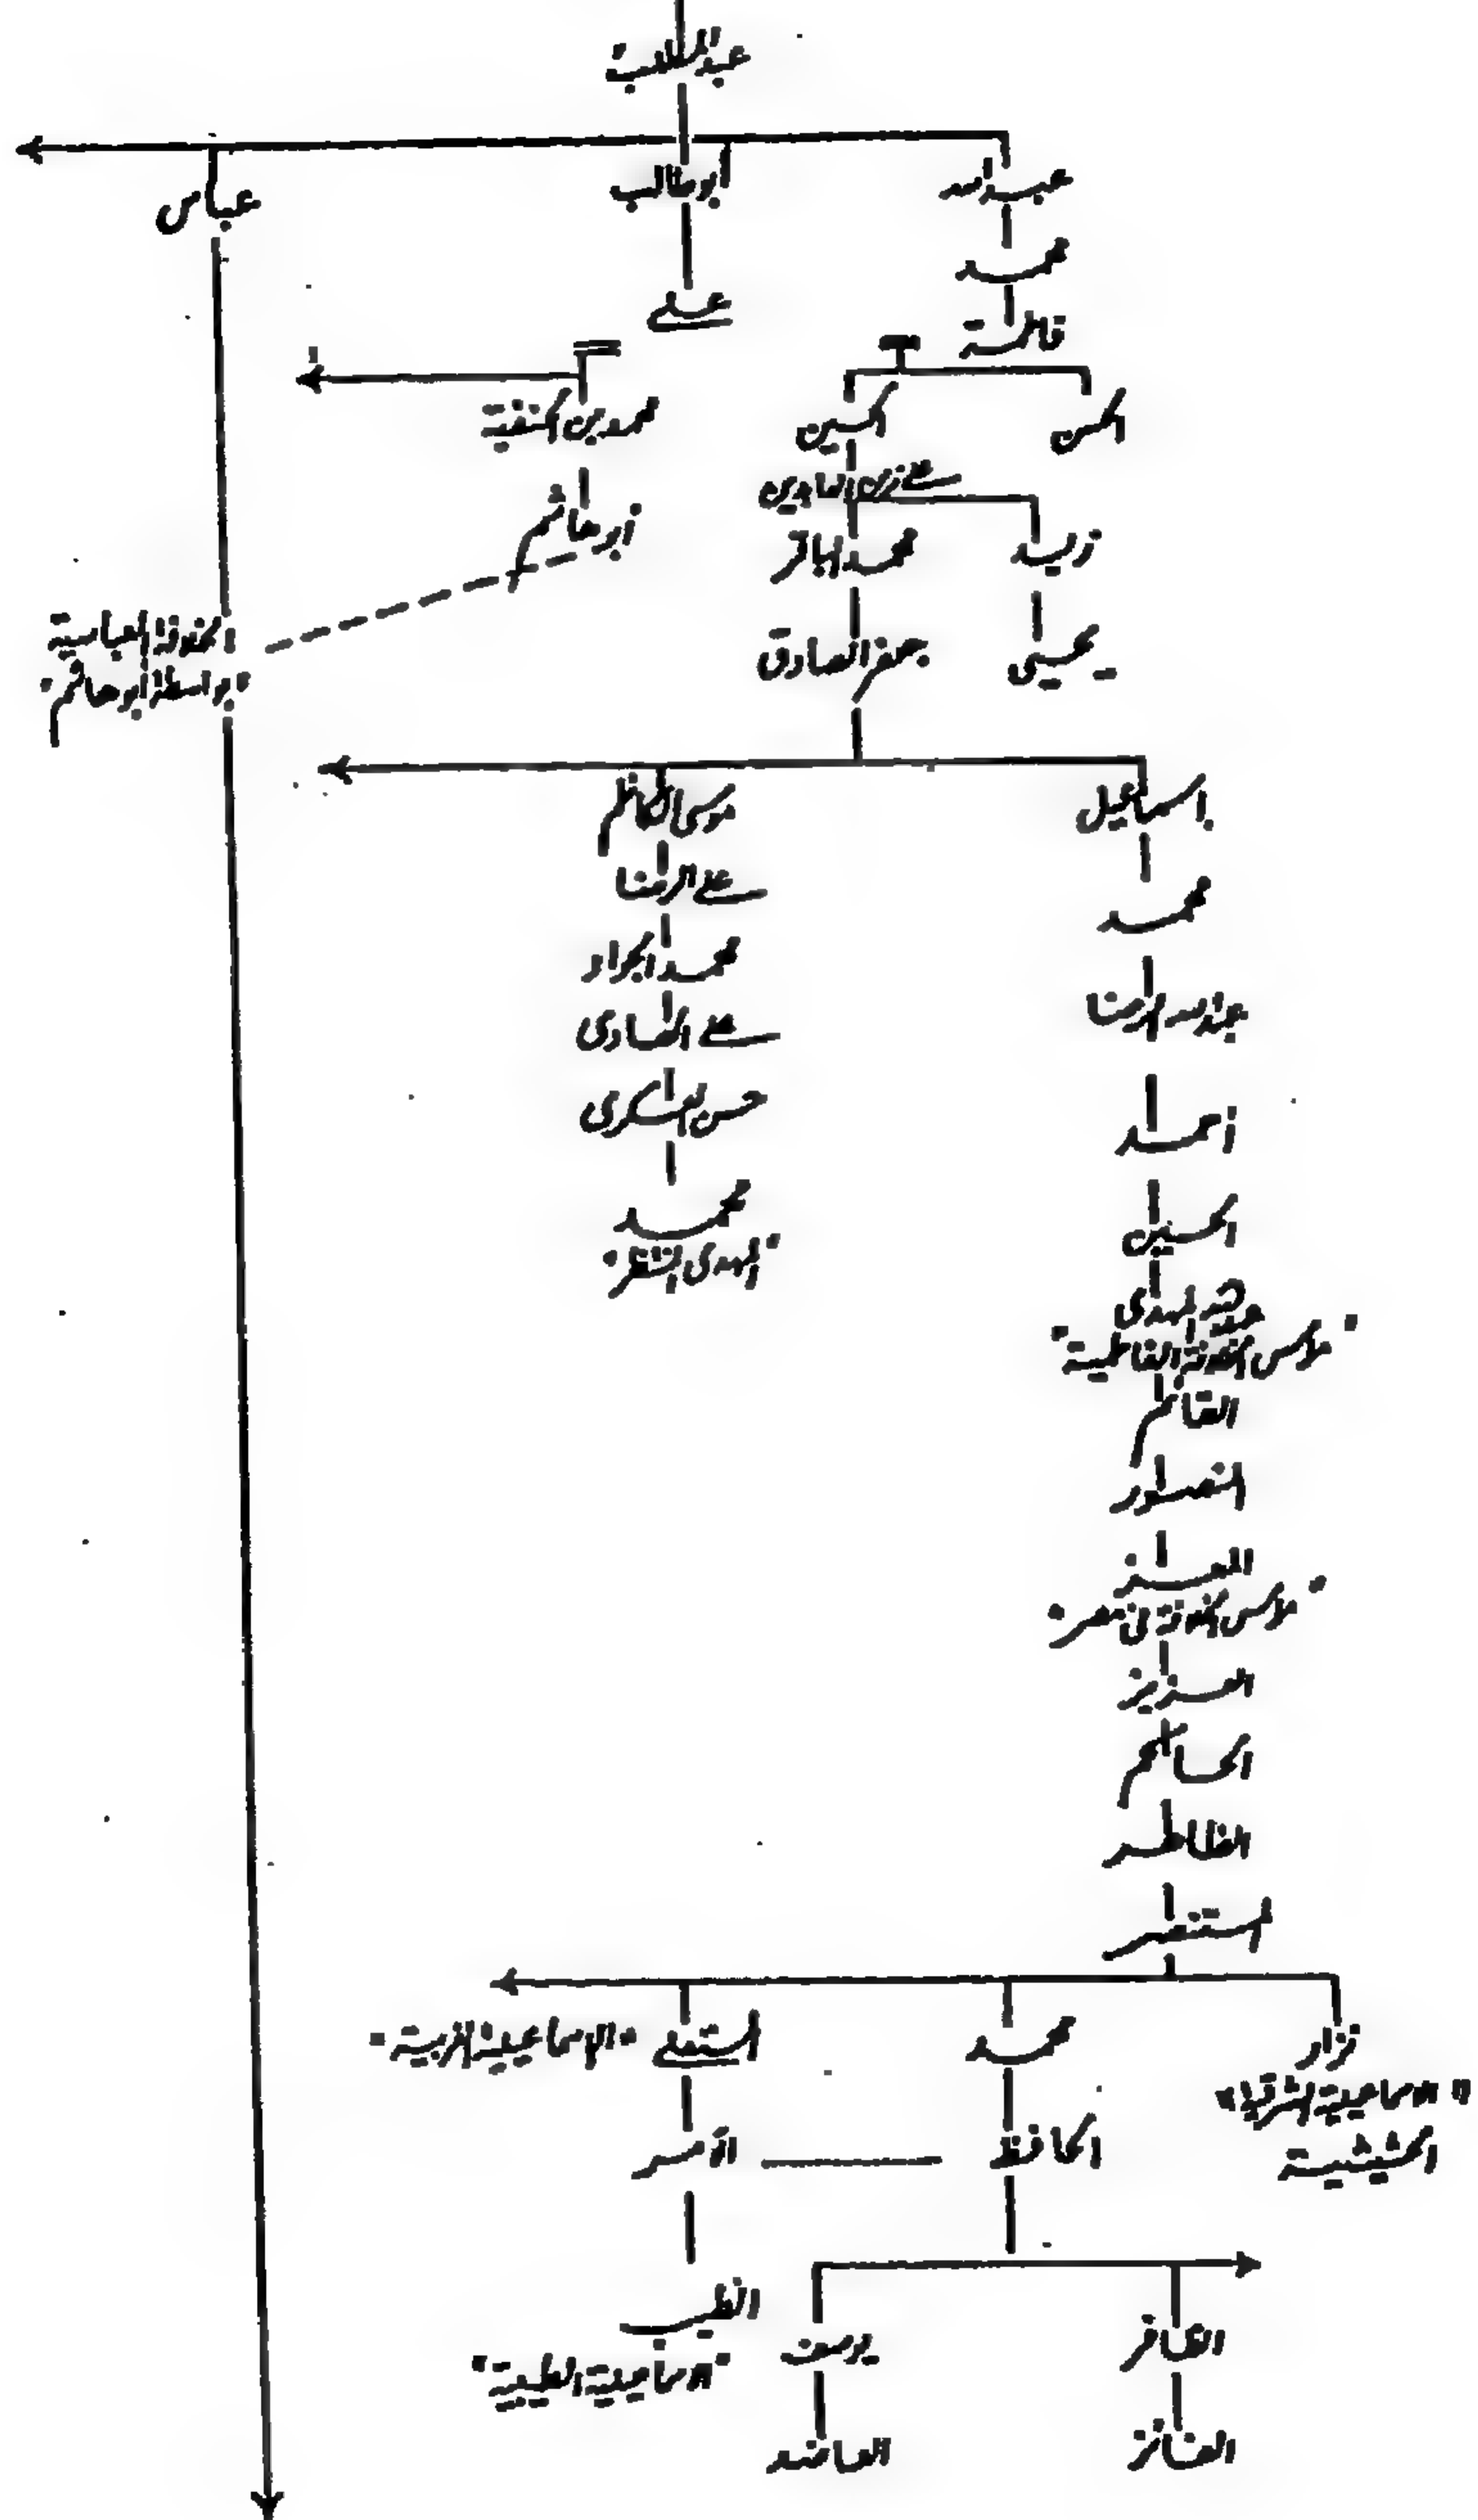 عبدالمطلب
عبدالله
ابوطالب
عباس
محمد
علي
فاطمة
الحسن
الحسين
محمد بن الحنفية
علي زين العابدين
أبو هاشم
زيد
محمد الباقر
يحيى
جعفر الصادق
الخلافة العباسية
"بواسطة أبو هاشم"
إسماعيل
موسى الكاظم
محمد
علي الرضا
عبدالله الرضا
محمد الجواد
علي الهادي
أحمد
حسن العسكري
الحسين
محمد
"المهدي المنتظر"
المهدي
"مؤسس الخلافة الفاطمية"
القائم
المنصور
المعز
"مؤسس الخلافة في مصر"
العزيز
الحاكم
الظاهر
المستنصر
نزار
"الإسماعيلية الشرقية"
الحشيشية
محمد
المستعلي "الإسماعيلية الغربية"
الحافظ
الآمر
الطيب
"الإسماعيلية الطيبية"
الظافر
يوسف
الفائز
العاضد